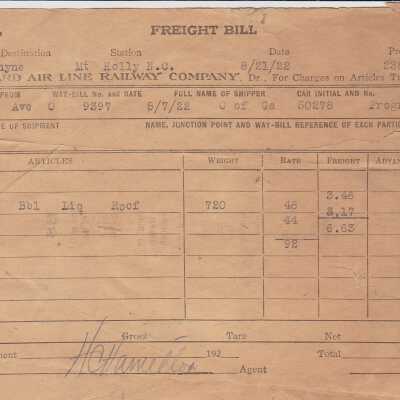 FREIGHT BILL
Destination Station Date Pro
yne Mt Holly N.C. 8/21/22 238
ARD AIR LINE RAILWAY COMPANY, Dr., For Charges on Articles T
FROM WAY-BILL No. and DATE FULL NAME OF SHIPPER CAR INITIAL and No.
Ave O 9397 8/7/22 O of Ga 50278 Prog
E OF SHIPMENT NAME, JUNCTION POINT AND WAY-BILL REFERENCE OF EACH PARTI
ARTICLES WEIGHT RATE FREIGHT ADVAN
3.46
Bbl Liq Roof 720 48 3,17
44 6.63
92
Gross Tare Net
ment H C Hamilton 192 Total
Agent